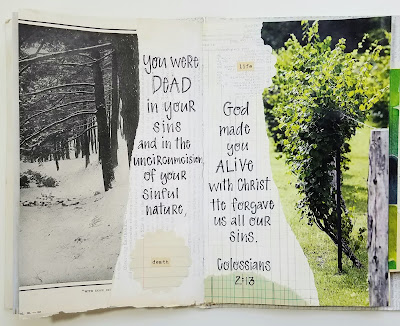 You were
DEAD
in your
sins
and in the
uncircumcision
of your
sinful
nature,
death
life
God
made
you
ALIVE
with Christ.
He forgave
us all our
sins.
Colossians
2:13